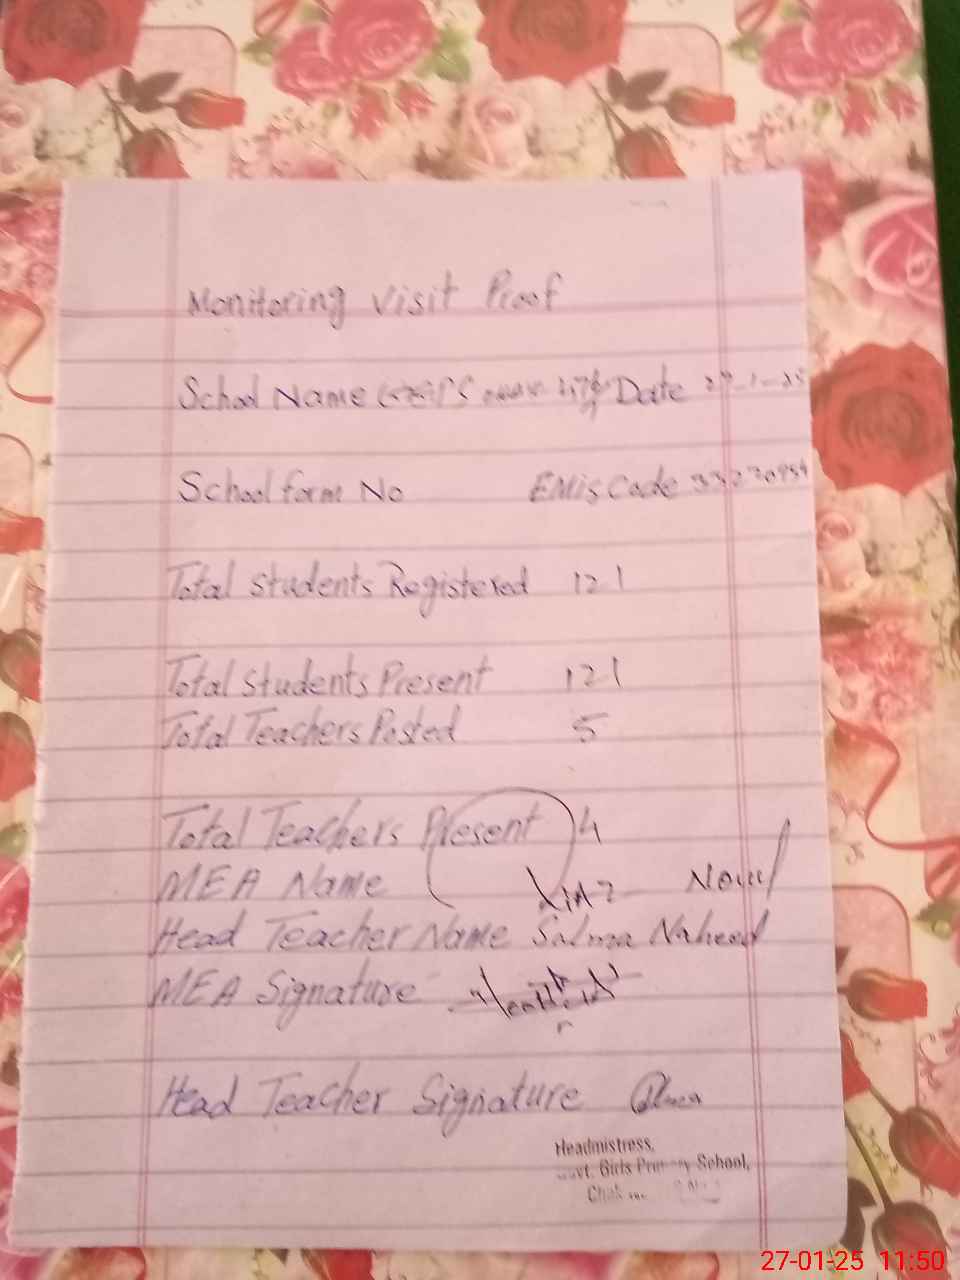 Monitoring Visit Proof
School Name GGPS Date 27-1-25
School form No EMis Code
Total Students Registered 121
Total Students Present 121
Total Teachers Posted 5
Total Teachers Present 4
MEA Name
Head Teacher Name Salma Naheed
MEA Signature
Head Teacher Signature
Headmistress,
Govt. Girls Primary School,
Chak
27-01-25 11:50